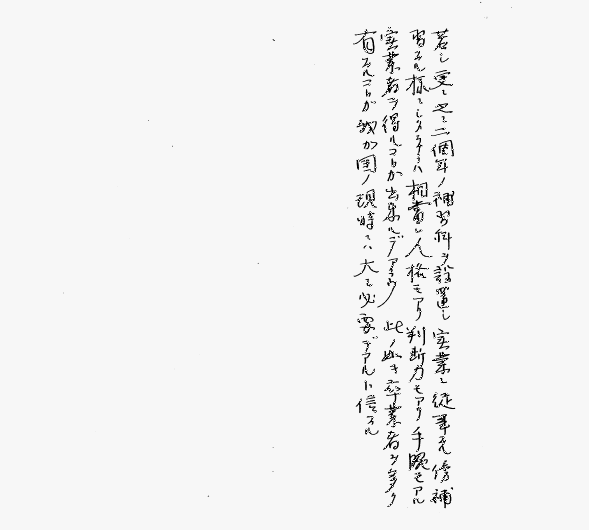 若シ更ニ之ニ二個年ノ補習科ヲ設置シ実業ニ従事スル傍補
習スル様ニシタナラハ相當ノ人格モアリ判断力モアリ手腕モアル
実業者ヲ得ルコトカ出来ルデアラウ 此ノ如キ卒業者ヲ多ク
有スルコトガ我カ国ノ現時ニハ大ニ必要デアルト信スル